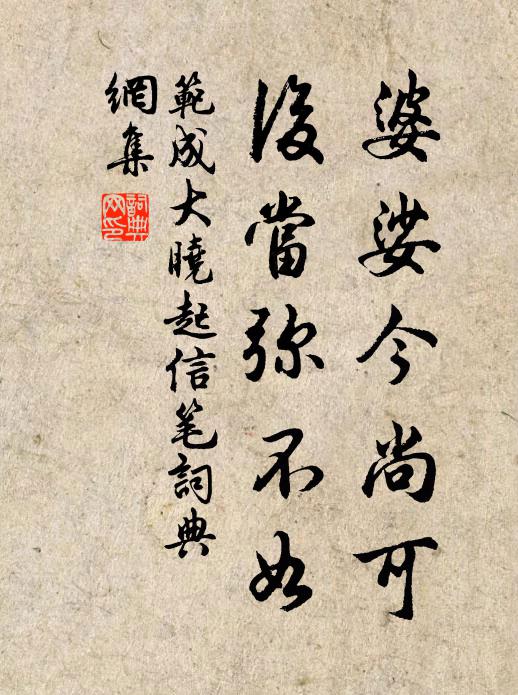 婆娑今尚可
後當弥不如
範成大曉起信笔詞典
網集
詞典網印